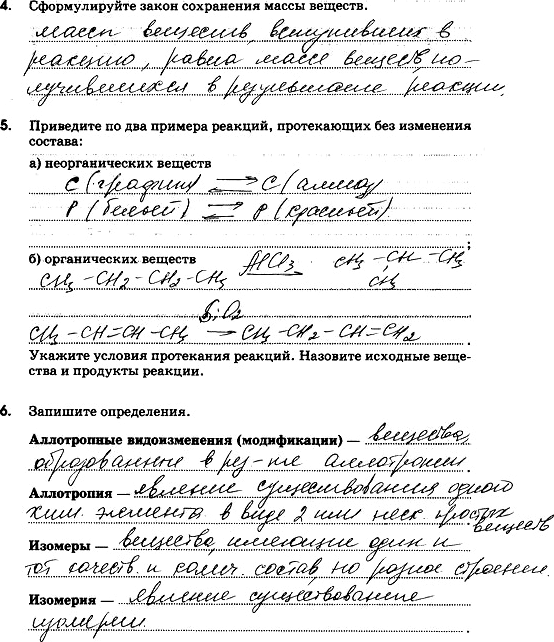 4. Сформулируйте закон сохранения массы веществ.
масса веществ, вступивших в
реакцию, равна массе веществ по-
лучившихся в результате реакции.
5. Приведите по два примера реакций, протекающих без изменения
состава:
а) неорганических веществ
C (графит) ⇄ C (алмаз)
P (белый) ⇄ P (красный)
;
б) органических веществ AlCl3 CH3 - CH - CH3
CH3 - CH2 - CH2 - CH3 CH3
SiO2
CH3 - CH = CH - CH3 → CH3 - CH2 - CH = CH2.
Укажите условия протекания реакций. Назовите исходные веще-
ства и продукты реакции.
6. Запишите определения.
Аллотропные видоизменения (модификации) — вещества,
образованные в рез-те аллотропии.
Аллотропия — явление существования одного
хим. элемента в виде 2 или неск. простых
веществ
Изомеры — вещества, имеющие один и
тот качеств. и колич. состав, но разное строение.
Изомерия — явление существование
изомерии.